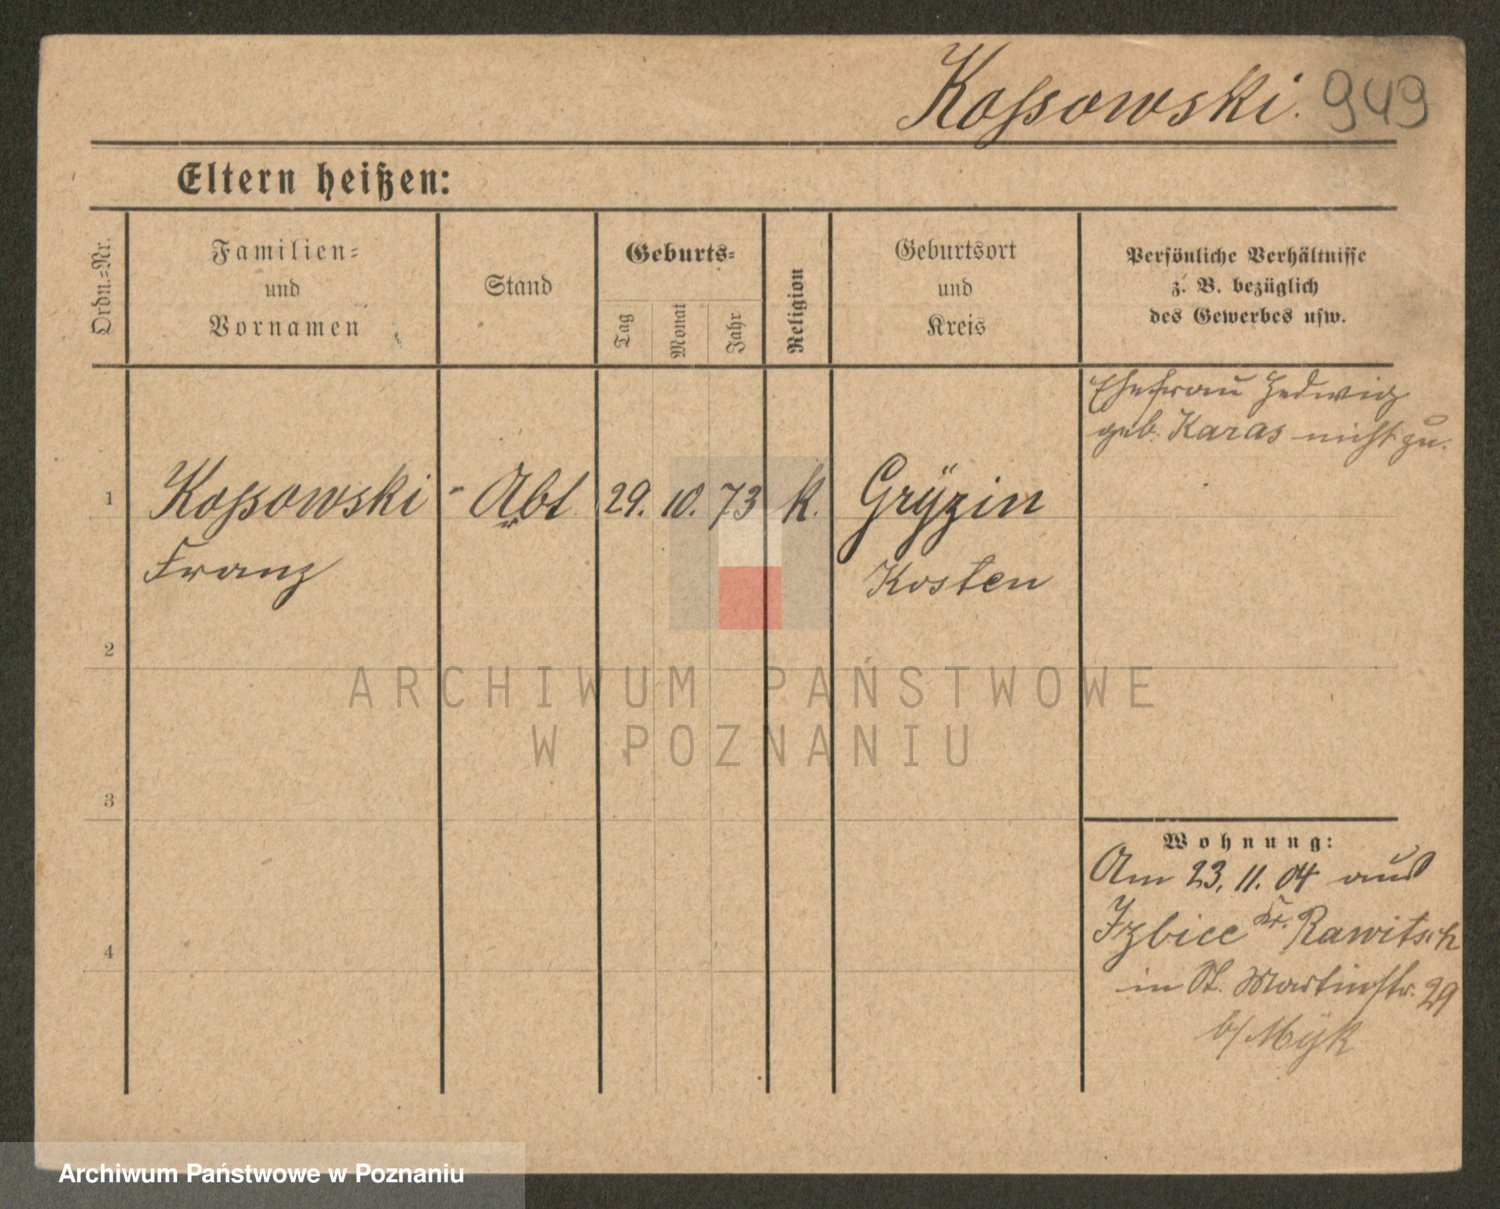 Kossowski. 949
Eltern heißen:
Ordn.=Nr.
Familien=
und
Vornamen
Stand
Geburts=
Tag
Monat
Jahr
Religion
Geburtsort
und
Kreis
Persönliche Verhältnisse
z. B. bezüglich
des Gewerbes usw.
Ehefrau Hedwig
geb. Karas nicht zu.
1 Kossowski - Abt 29. 10. 73 k. Grÿzin
Franz Kosten
2
3
4
Wohnung:
Am 23. 11. 04 aus
Izbice Kr. Rawitsch
in St. Martinstr. 29
b/ Mÿk
ARCHIWUM PAŃSTWOWE
W POZNANIU
Archiwum Państwowe w Poznaniu